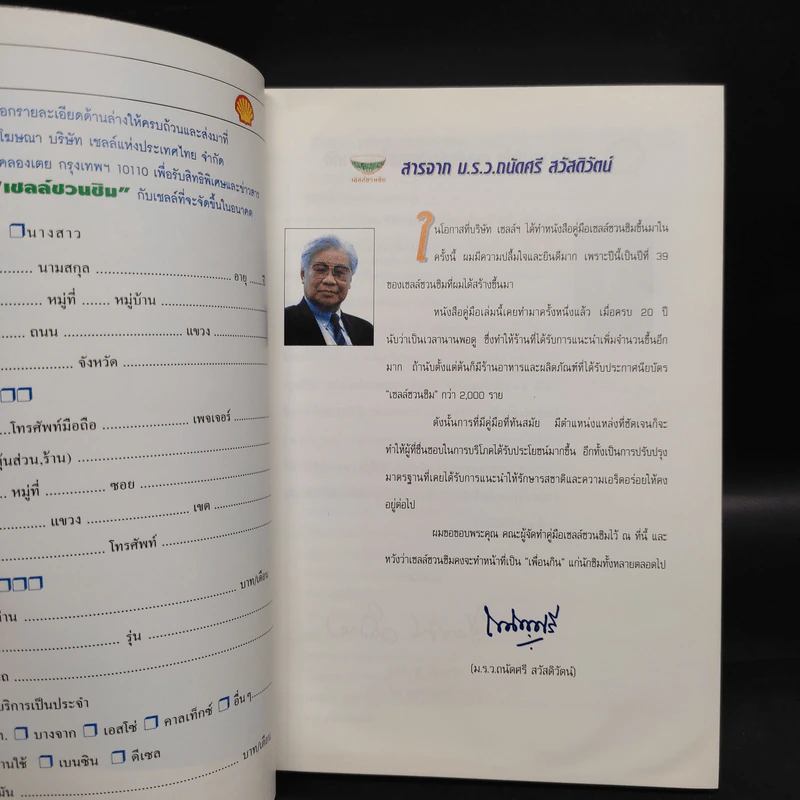 อกรายละเอียดด้านล่างให้ครบถ้วนและส่งมาที่
โฆษณา บริษัท เชลล์แห่งประเทศไทย จำกัด
คลองเตย กรุงเทพฯ 10110 เพื่อรับสิทธิพิเศษและข่าวสาร
"เชลล์ชวนชิม" กับเชลล์ที่จะจัดขึ้นในอนาคต
นางสาว
นามสกุล อายุ ปี
หมู่ที่ หมู่บ้าน
ถนน แขวง
จังหวัด
โทรศัพท์มือถือ เพจเจอร์
หุ้นส่วน,ร้าน)
หมู่ที่ ซอย
แขวง เขต
โทรศัพท์
บาท/เดือน
รุ่น
บริการเป็นประจำ
บางจาก เอสโซ่ คาลเท็กซ์ อื่นๆ
เบนซิน ดีเซล
บาท/เดือน
เชลล์ชวนชิม
สารจาก ม.ร.ว.ถนัดศรี สวัสดิวัตน์
ในโอกาสที่บริษัท เชลล์ฯ ได้ทำหนังสือคู่มือเชลล์ชวนชิมขึ้นมาใน
ครั้งนี้ ผมมีความปลื้มใจและยินดีมาก เพราะปีนี้เป็นปีที่ 39
ของเชลล์ชวนชิมที่ผมได้สร้างขึ้นมา
หนังสือคู่มือเล่มนี้เคยทำมาครั้งหนึ่งแล้ว เมื่อครบ 20 ปี
นับว่าเป็นเวลานานพอดู ซึ่งทำให้ร้านที่ได้รับการแนะนำเพิ่มจำนวนขึ้นอีก
มาก ถ้านับตั้งแต่ต้นก็มีร้านอาหารและผลิตภัณฑ์ที่ได้รับประกาศนียบัตร
"เชลล์ชวนชิม" กว่า 2,000 ราย
ดังนั้นการที่มีคู่มือที่ทันสมัย มีตำแหน่งแหล่งที่ชัดเจนก็จะ
ทำให้ผู้ที่ชื่นชอบในการบริโภคได้รับประโยชน์มากขึ้น อีกทั้งเป็นการปรับปรุง
มาตรฐานที่เคยได้รับการแนะนำให้รักษารสชาติและความเอร็ดอร่อยให้คง
อยู่ต่อไป
ผมขอขอบพระคุณ คณะผู้จัดทำคู่มือเชลล์ชวนชิมไว้ ณ ที่นี้ และ
หวังว่าเชลล์ชวนชิมคงจะทำหน้าที่เป็น "เพื่อนกิน" แก่นักชิมทั้งหลายตลอดไป
(ม.ร.ว.ถนัดศรี สวัสดิวัตน์)